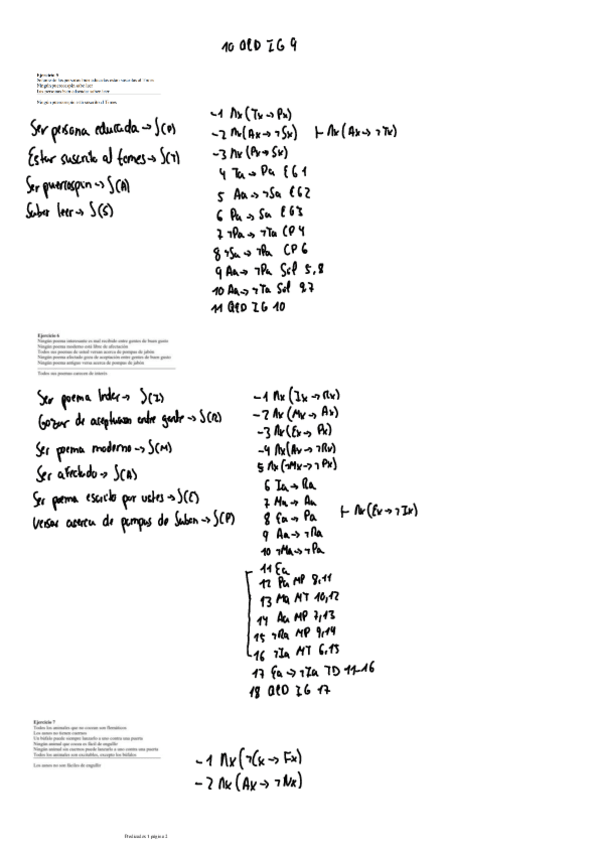 10 QED IG 9
Ejercicio 5
Ningún puercoespín sabe leer
Ningún puercoespín está suscrito al Times
Ser persona educada → S(P)
Estar suscrito al tomes → S(T)
Ser puercospin → S(A)
Saber leer → S(S)
-1 Λx (Tx → Px)
-2 Λx (Ax → ¬Sx) ⊢ Λx (Ax → ¬Tx)
-3 Λx (Px → Sx)
4 Ta → Pa EG 1
5 Aa → ¬Sa EG 2
6 Pa → Sa EG 3
7 ¬Pa → ¬Ta CP 4
8 ¬Sa → ¬Pa CP 6
9 Aa → ¬Pa Sil 5,8
10 Aa → ¬Ta Sil 9,7
11 QED IG 10
Ejercicio 6
Ningún poema interesante es mal recibido entre gentes de buen gusto
Ningún poema moderno está libre de afectación
Todos sus poemas de usted versan acerca de pompas de jabón
Ningún poema afectado goza de aceptación entre gentes de buen gusto
Ningún poema antiguo versa acerca de pompas de jabón
Todos sus poemas carecen de interés
Ser poema Inder → S(I)
Gozar de aceptacion entre gente → S(R)
Ser poema moderno → S(M)
Ser afectado → S(A)
Ser poema escrito por ustes → S(E)
Versar acerca de pompas de Jabon → S(P)
-1 Λx (Ix → Rx)
-2 Λx (Mx → Ax)
-3 Λx (Ex → Px)
-4 Λx (Ax → ¬Rx)
5 Λx (¬Mx → ¬Px)
6 Ia → Ra
7 Ma → Aa
8 Ea → Pa ⊢ Λx (Ex → ¬Ix)
9 Aa → ¬Ra
10 ¬Ma → ¬Pa
11 Ea
12 Pa MP 8,11
13 Ma MT 10,12
14 Aa MP 7,13
15 ¬Ra MP 9,14
16 ¬Ia MT 6,15
17 Ea → ¬Ia TD 11-16
18 QED IG 17
Ejercicio 7
Todos los animales que no cocean son flemáticos
Los asnos no tienen cuernos
Un búfalo puede siempre lanzarlo a uno contra una puerta
Ningún animal que cocea es fácil de engullir
Ningún animal sin cuernos puede lanzarlo a uno contra una puerta
Todos los animales son excitables, excepto los búfalos
Los asnos no son fáciles de engullir
-1 Λx (¬Cx → Fx)
-2 Λx (Ax → ¬Nx)
Predicados 1 página 2